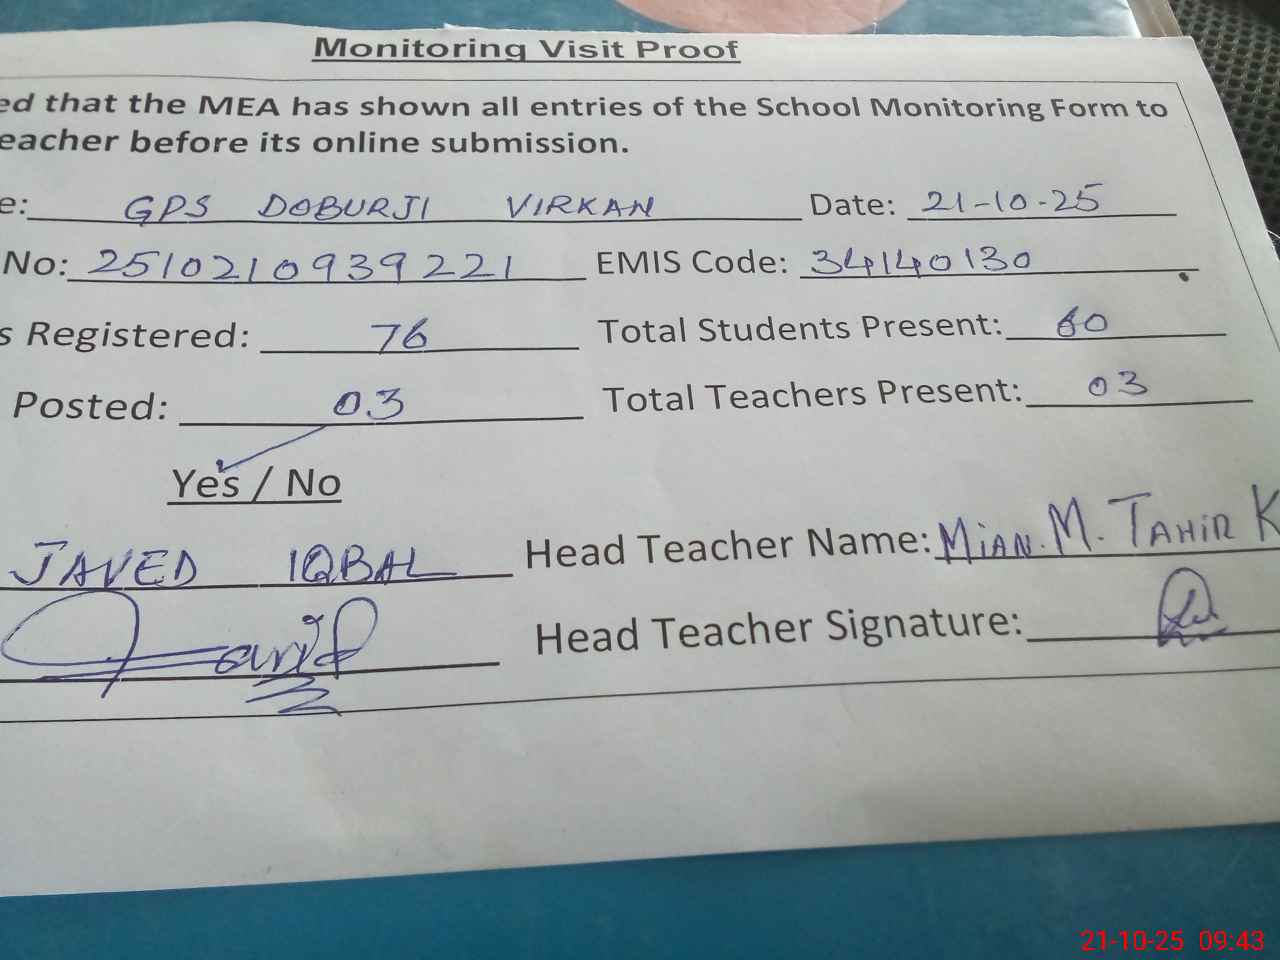 Monitoring Visit Proof
ed that the MEA has shown all entries of the School Monitoring Form to
eacher before its online submission.
e: GPS DOBURJI VIRKAN Date: 21-10-25
No: 2510210939221 EMIS Code: 34140130
s Registered: 76 Total Students Present: 60
Posted: 03 Total Teachers Present: 03
Yes / No
JAVED IQBAL Head Teacher Name: MIAN. M. TAHIR K
Head Teacher Signature:
21-10-25 09:43